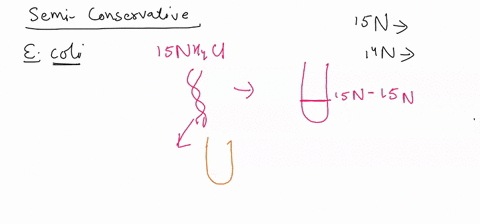 Semi-Conservative
E. coli
15NH4Cl
15N →
14N →
→
15N-15N